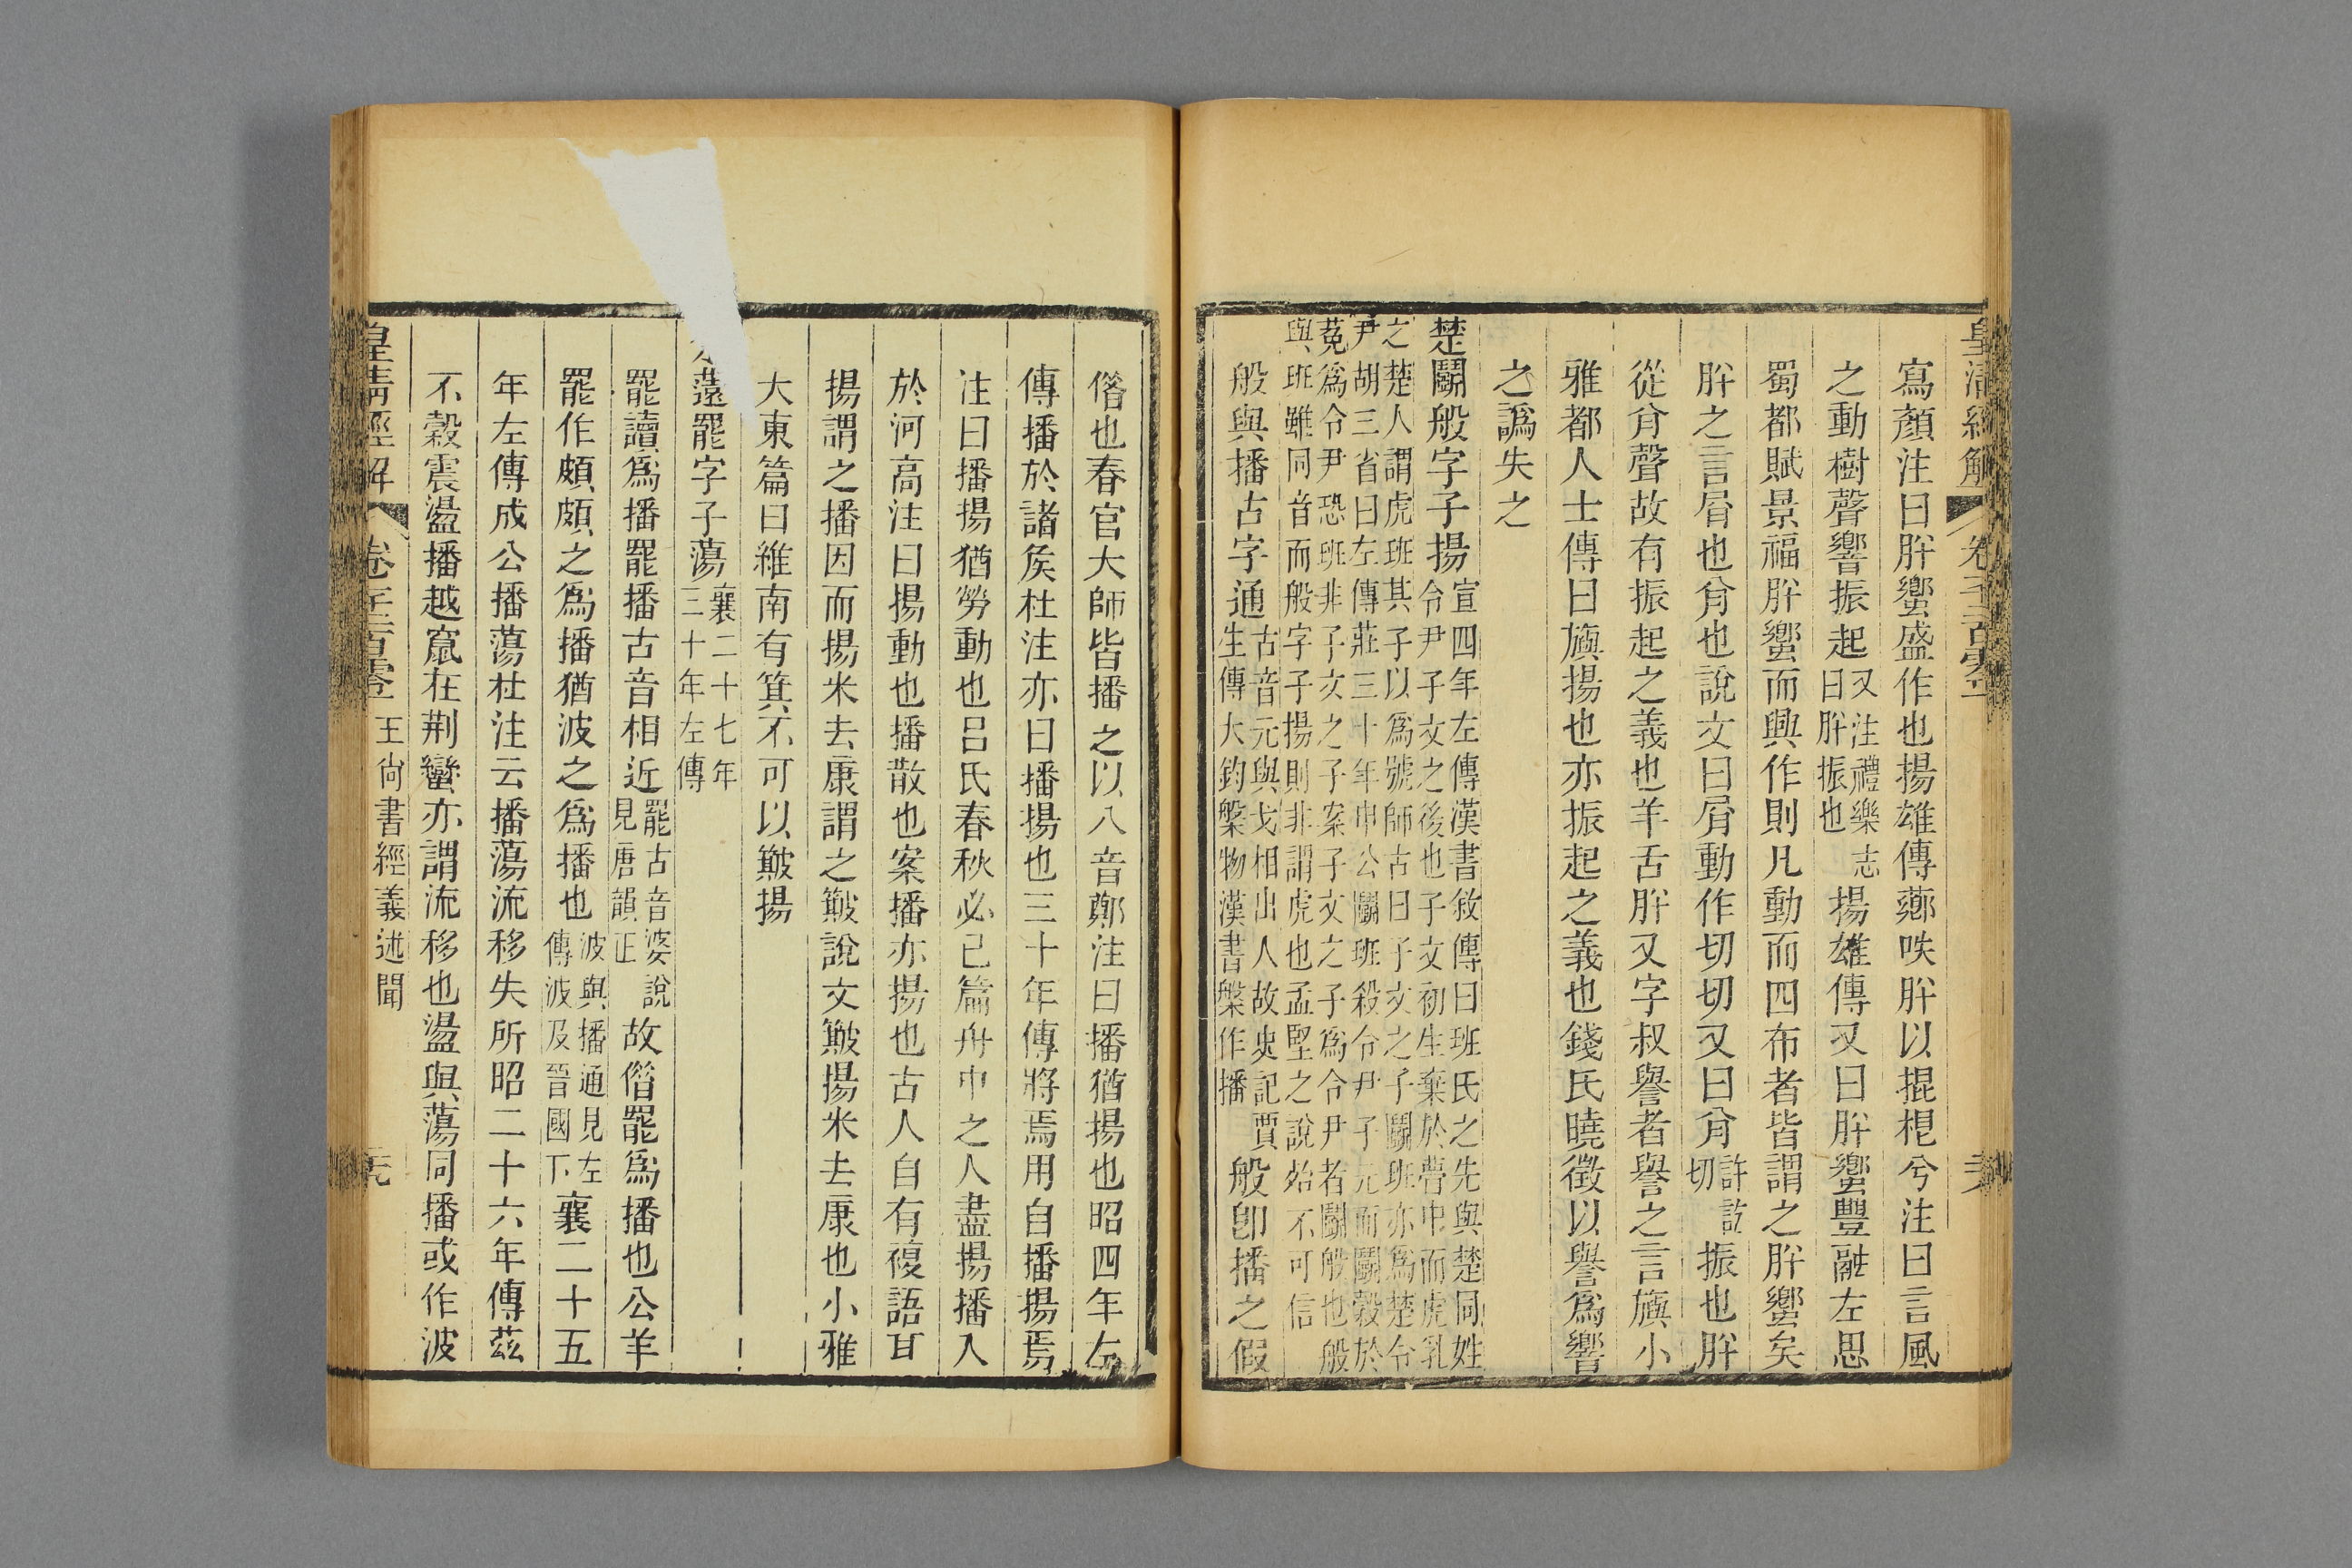 皇清經解 卷千二百零二 三六
寫顏注曰肸蠁盛作也揚雄傳薌呹肸以掍㭿兮注曰言風
之動樹聲響振起又注禮樂志曰肸振也揚雄傳又曰肸蠁豐融左思
蜀都賦景福肸蠁而興作則凡動而四布者皆謂之肸蠁矣
肸之言䏌也䏌也說文曰䏌動作切切又曰䏌許訖切振也肸
從䏌聲故有振起之義也羊舌肸又字叔譽者譽之言旟小
雅都人士傳曰旟揚也亦振起之義也錢氏曉徵以譽爲響
之譌失之
楚鬭般字子揚宣四年左傳漢書敘傳曰班氏之先與楚同姓令尹子文之後也子文初生棄於瞢中而虎乳
之楚人謂虎班其子以爲號師古曰子文之子鬭班亦爲楚令尹胡三省曰左傳莊三十年申公鬭班殺令尹子元而鬭穀於
菟爲令尹恐班非子文之子案子文之子爲令尹者鬭般也般與班雖同音而般字子揚則非謂虎也孟堅之說殆不可信
般與播古字通古音元與戈相出入故史記賈生傳大鈞槃物漢書槃作播般卽播之假
偺也春官大師皆播之以八音鄭注曰播猶揚也昭四年左
傳播於諸矦杜注亦曰播揚也三十年傳將焉用自播揚焉
注曰播揚猶勞動也呂氏春秋必己篇舟中之人盡揚播入
於河高注曰揚動也播散也案播亦揚也古人自有複語耳
揚謂之播因而揚米去康謂之簸說文簸揚米去康也小雅
大東篇曰維南有箕不可以簸揚
薳罷字子蕩襄二十七年三十年左傳
罷讀爲播罷播古音相近罷古音婆說見唐韻正故偺罷爲播也公羊
罷作頗頗之爲播猶波之爲播也波與播通見左傳波及晉國下襄二十五
年左傳成公播蕩杜注云播蕩流移失所昭二十六年傳茲
不穀震盪播越竄在荆蠻亦謂流移也盪與蕩同播或作波
皇清經解 卷千二百零二 王尙書經義述聞 三九